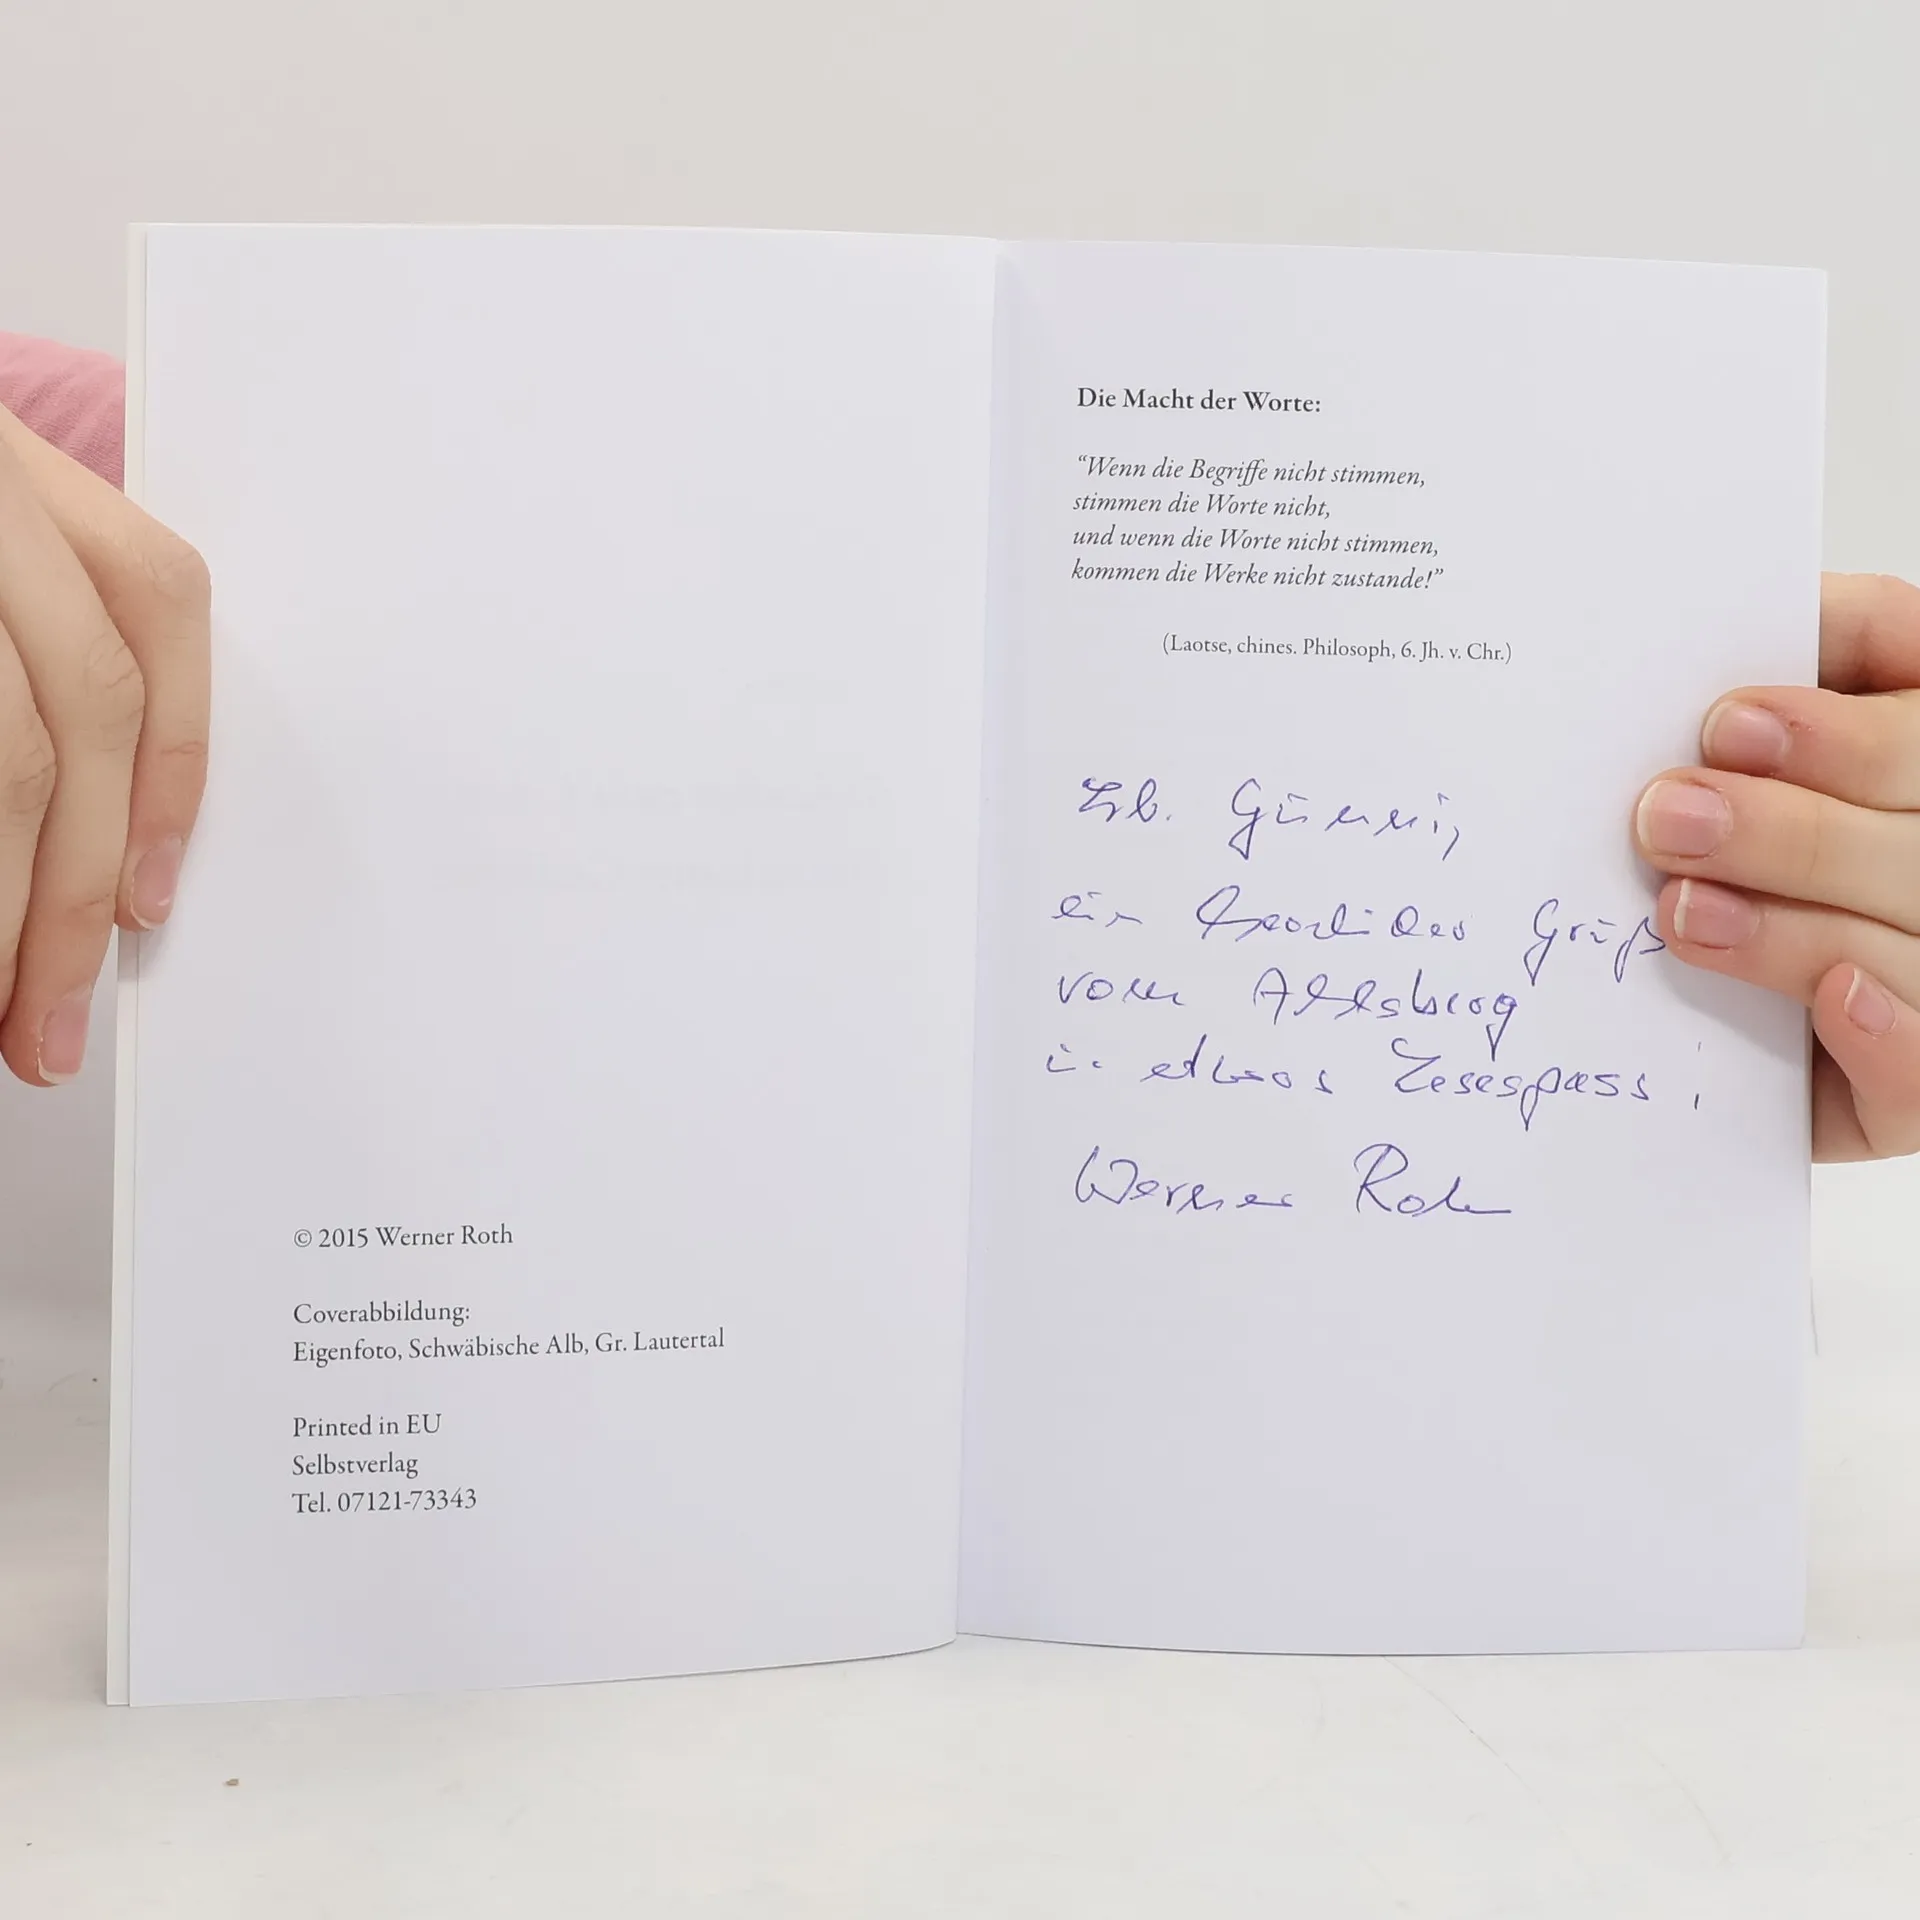 © 2015 Werner Roth
Coverabbildung:
Eigenfoto, Schwäbische Alb, Gr. Lautertal
Printed in EU
Selbstverlag
Tel. 07121-73343
Die Macht der Worte:
“Wenn die Begriffe nicht stimmen,
stimmen die Worte nicht,
und wenn die Worte nicht stimmen,
kommen die Werke nicht zustande!”
(Laotse, chines. Philosoph, 6. Jh. v. Chr.)
Lb.
ein Gruß
vom
etwas Lesespass!
Werner Roth